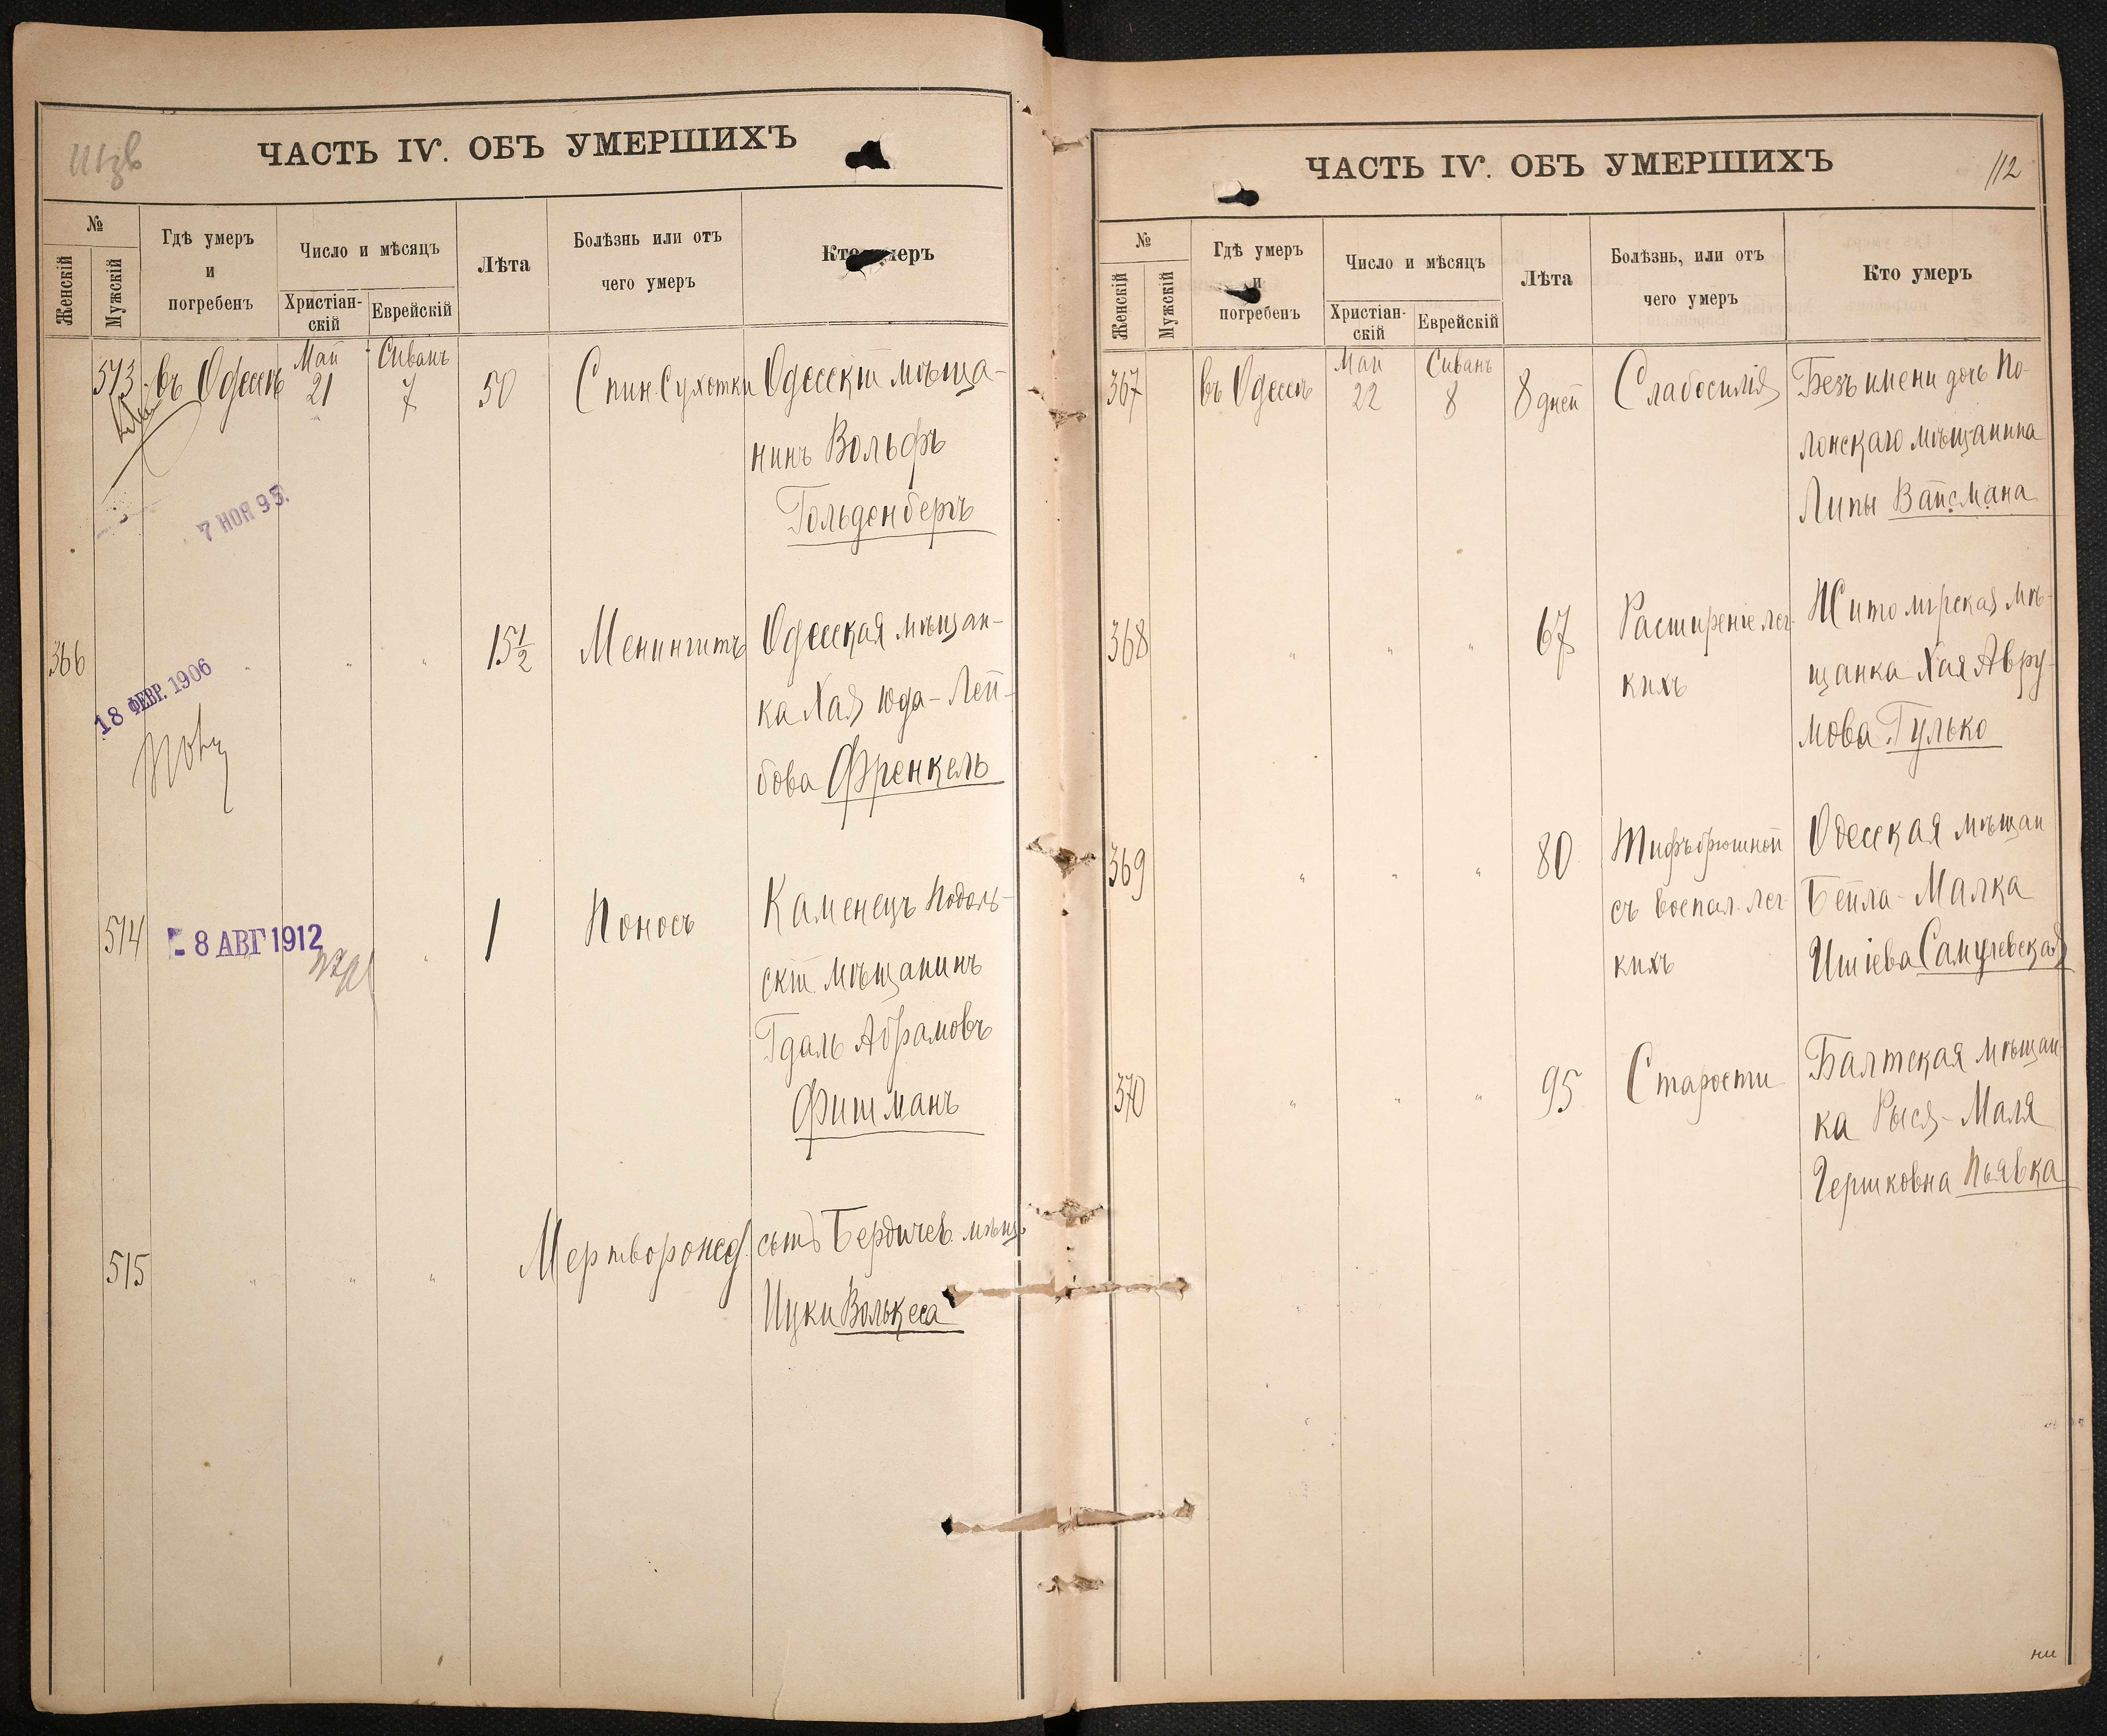 ЧАСТЬ IV. ОБЪ УМЕРШИХЪ
№
Женскій
Мужскій
Гдѣ умеръ
и
погребенъ
Число и мѣсяцъ
Христіан-
скій
Еврейскій
Лѣта
Болѣзнь или отъ
чего умеръ
Кто умеръ
513 въ Одессѣ Май 21 Сиванъ 7 50 Спин. Сухотки Одесскій мѣща-
нинъ Вольфъ
Гольденбергъ
7 НОЯ 95.
366 " " " 15 1/2 Менингитъ Одесская мѣщан-
ка Хая Юда-Лей-
бова Френкель
18 ФЕВР. 1906
514 " 1 Поносъ Каменецъ Подоль-
скій мѣщанинъ
Гдаль Абрамовъ
Фишманъ
8 АВГ 1912
515 " " " Мертворожд. сынъ Бердичев. мѣщ.
Ицки Волькеса
ЧАСТЬ IV. ОБЪ УМЕРШИХЪ
112
№
Женскій
Мужскій
Гдѣ умеръ
и
погребенъ
Число и мѣсяцъ
Христіан-
скій
Еврейскій
Лѣта
Болѣзнь, или отъ
чего умеръ
Кто умеръ
367 въ Одессѣ Май 22 Сиванъ 8 8 дней Слабосилія Безъ имени дочь По-
лонскаго мѣщанина
Липы Вайсмана
368 " " " 67 Расширеніе лег- Житомирская мѣ-
кихъ щанка Хая Авру-
мова Гулько
369 " " " 80 Тифъ брюшной Одесская мѣщан
съ воспал. лег- Бейла-Малка
кихъ Ишіева Самулевская
370 " " " 95 Старости Балтская мѣщан-
ка Рыся-Маля
Гершковна Пьявка